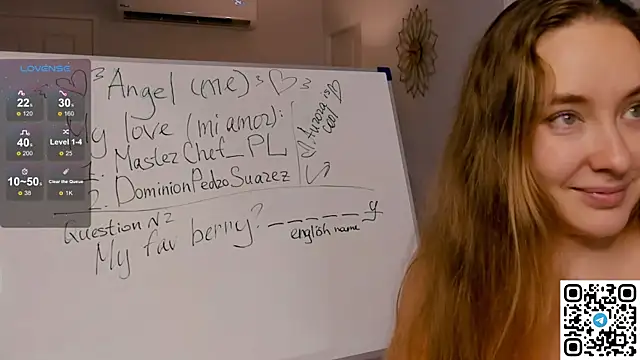 LOVENSE
22s 30s
120 160
40s Level 1-4
200 25
10~50s Clear the Queue
38 1K
3 Angel (me) 3 3
My love (mi amor):
1. MasterChef_PL
2. DominionPedroSuarez
is cool
Question N2
My fav berry? _ _ _ _ _ y
english name